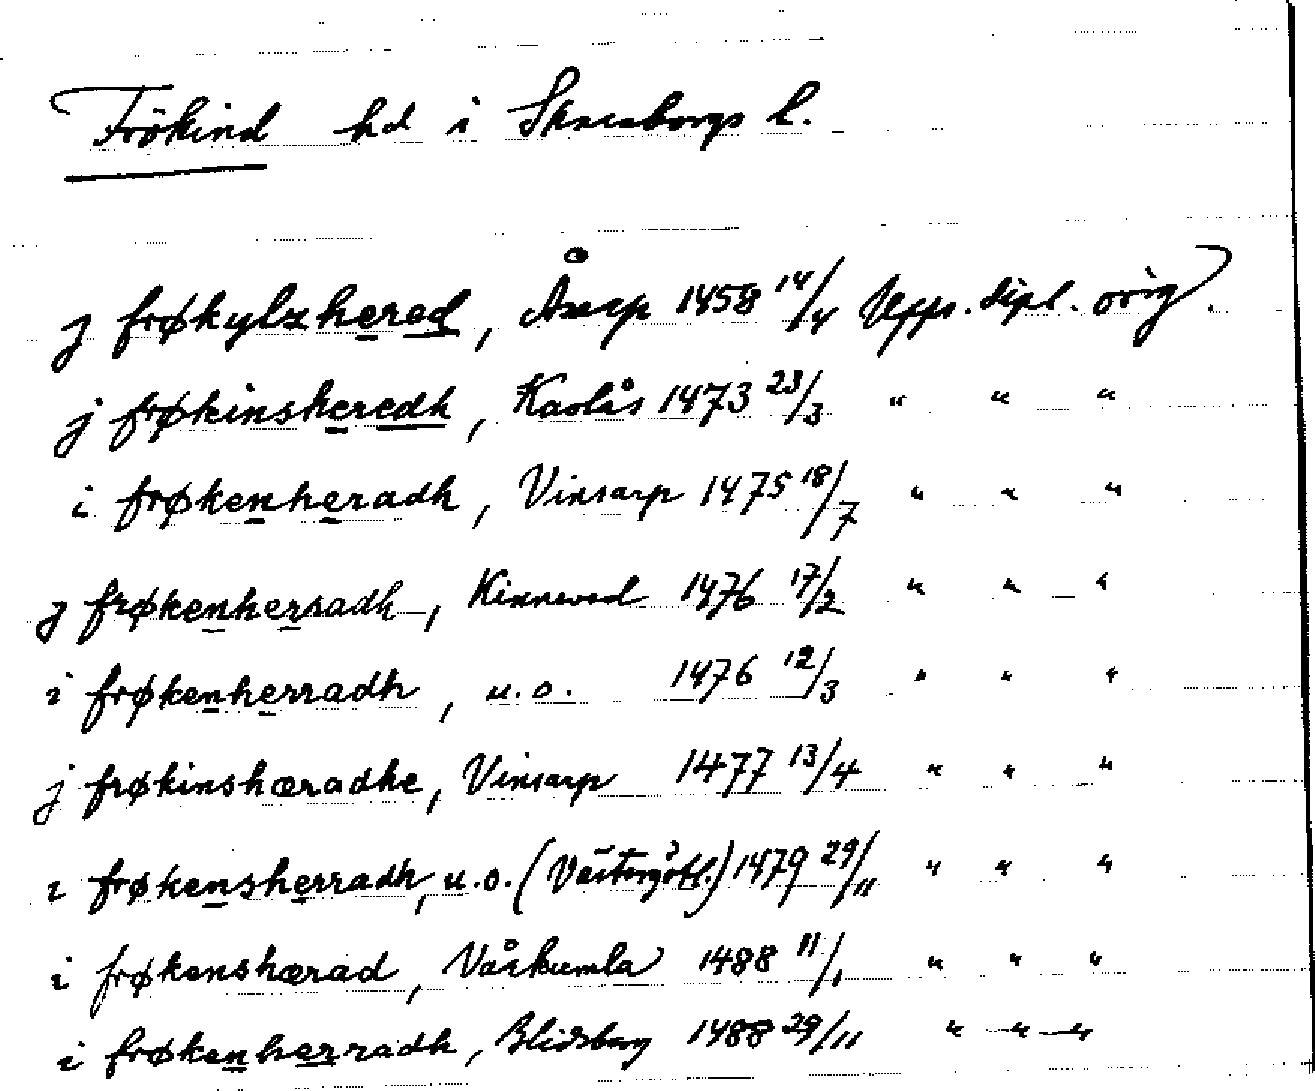 Frökind hd i Skaraborgs l.
j frøkylzhered, Åsarp 1458 14/4 Upps. dipl. orig.
j frøkinsheredh, Kavlås 1473 23/3 " " "
i frøkenheradh, Vinsarp 1475 18/7 " " "
j frøkenhersadh, Kinneved 1476 17/2 " " "
i frøkenherradh, u.o. 1476 12/3 " " "
j frøkinshæradhe, Vinsarp 1477 13/4 " " "
i frøkensherradh, u.o. (Västergötl.) 1479 29/11 " " "
i frøkenshærad, Vårkumla 1488 11/1 " " "
i frøkenherradh, Blidsberg 1488 29/11 " " "